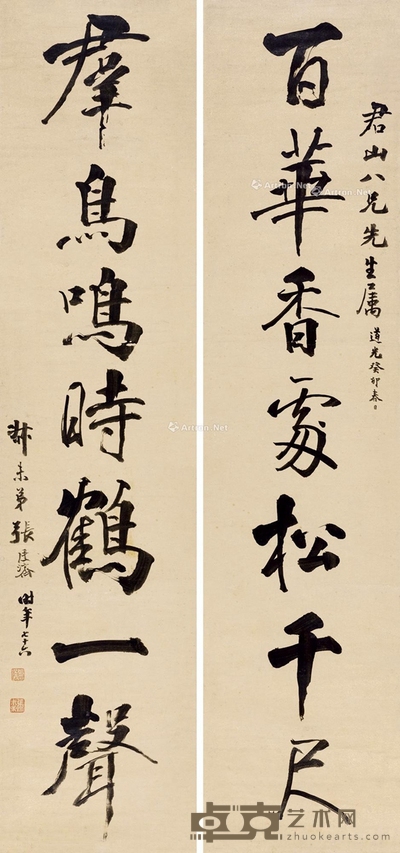 百華香處松千尺
君山八兄先生屬
道光癸卯春日
羣鳥鳴時鶴一聲
叔未弟張廷濟時年七十六
卓克艺术网
zhuokearts.com
Artron.Net